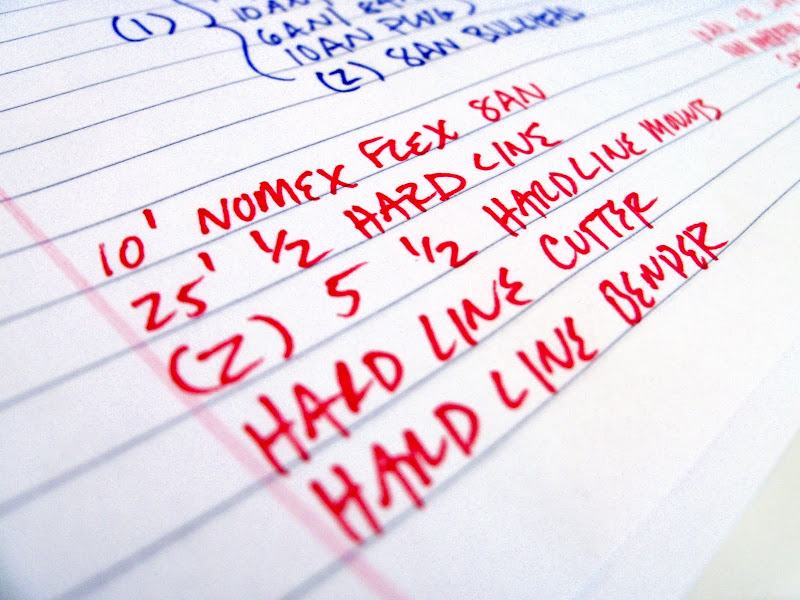 (1)
10AN
6AN/
10AN PLUG
(2) 8AN BULKHEAD
10' NOMEX FLEX 8AN
25' 1/2 HARD LINE
(2) 5 1/2 HARDLINE MOUNTS
HARD LINE CUTTER
HARD LINE BENDER